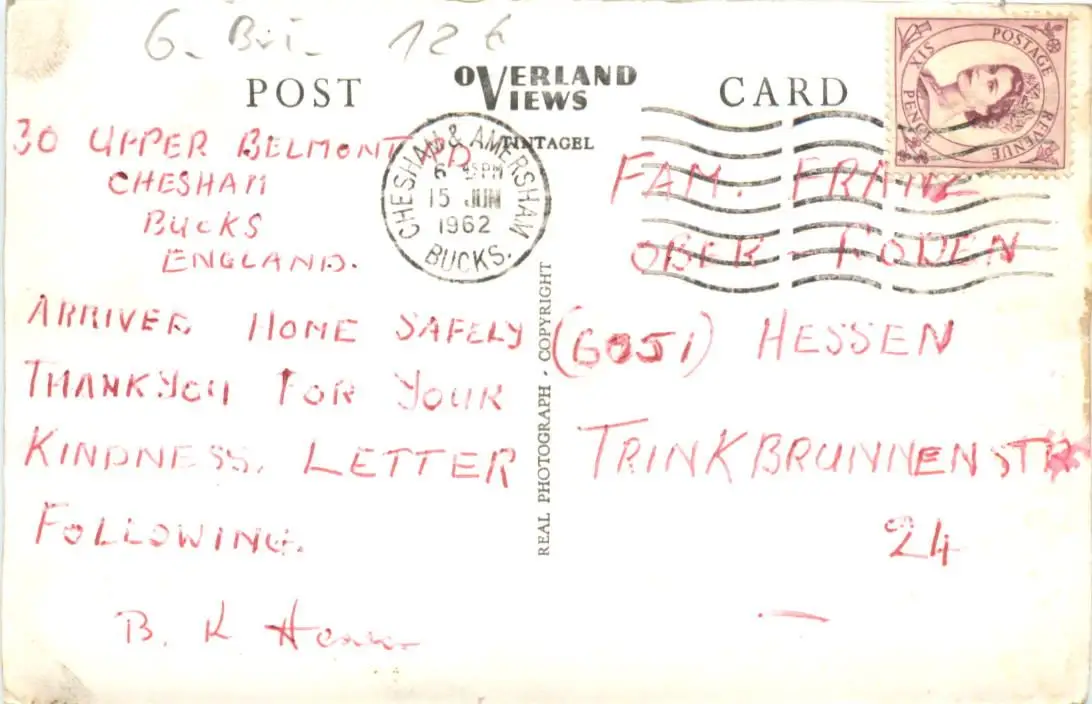 6. Bri. 12 6
POST CARD
OVERLAND
VIEWS
TINTAGEL
POSTAGE
REVENUE
SIX PENCE
CHESHAM & AMERSHAM
6 PM
15 JUN
1962
BUCKS.
30 UPPER BELMONT RD
CHESHAM
BUCKS
ENGLAND.
ARRIVED HOME SAFELY
THANKYOU FOR YOUR
KINDNESS. LETTER
FOLLOWING.
B. K
REAL PHOTOGRAPH - COPYRIGHT
FAM. FRANZ
OBER-RODEN
(6051) HESSEN
TRINKBRUNNENSTR
24